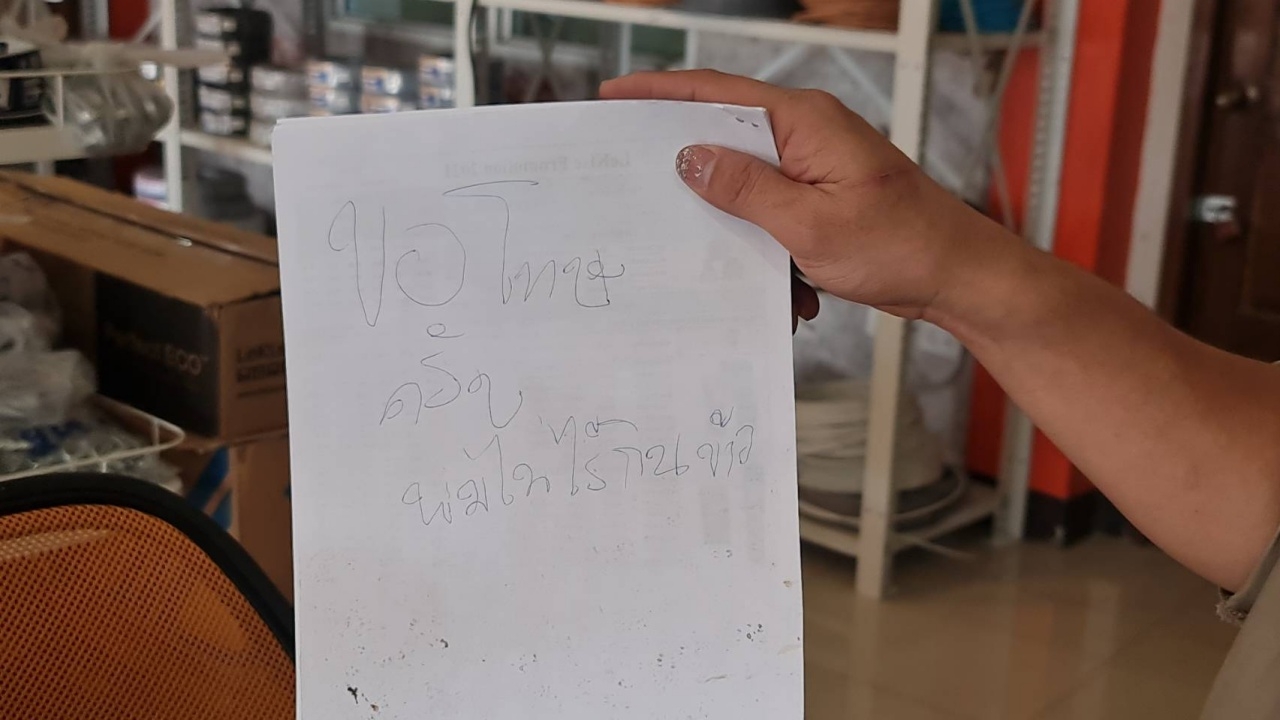 ขอโทษ
ครับ
ผมไม่ได้กินข้าว